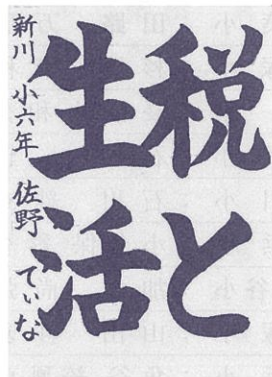 税と
生活
新川小六年 佐野てぃな